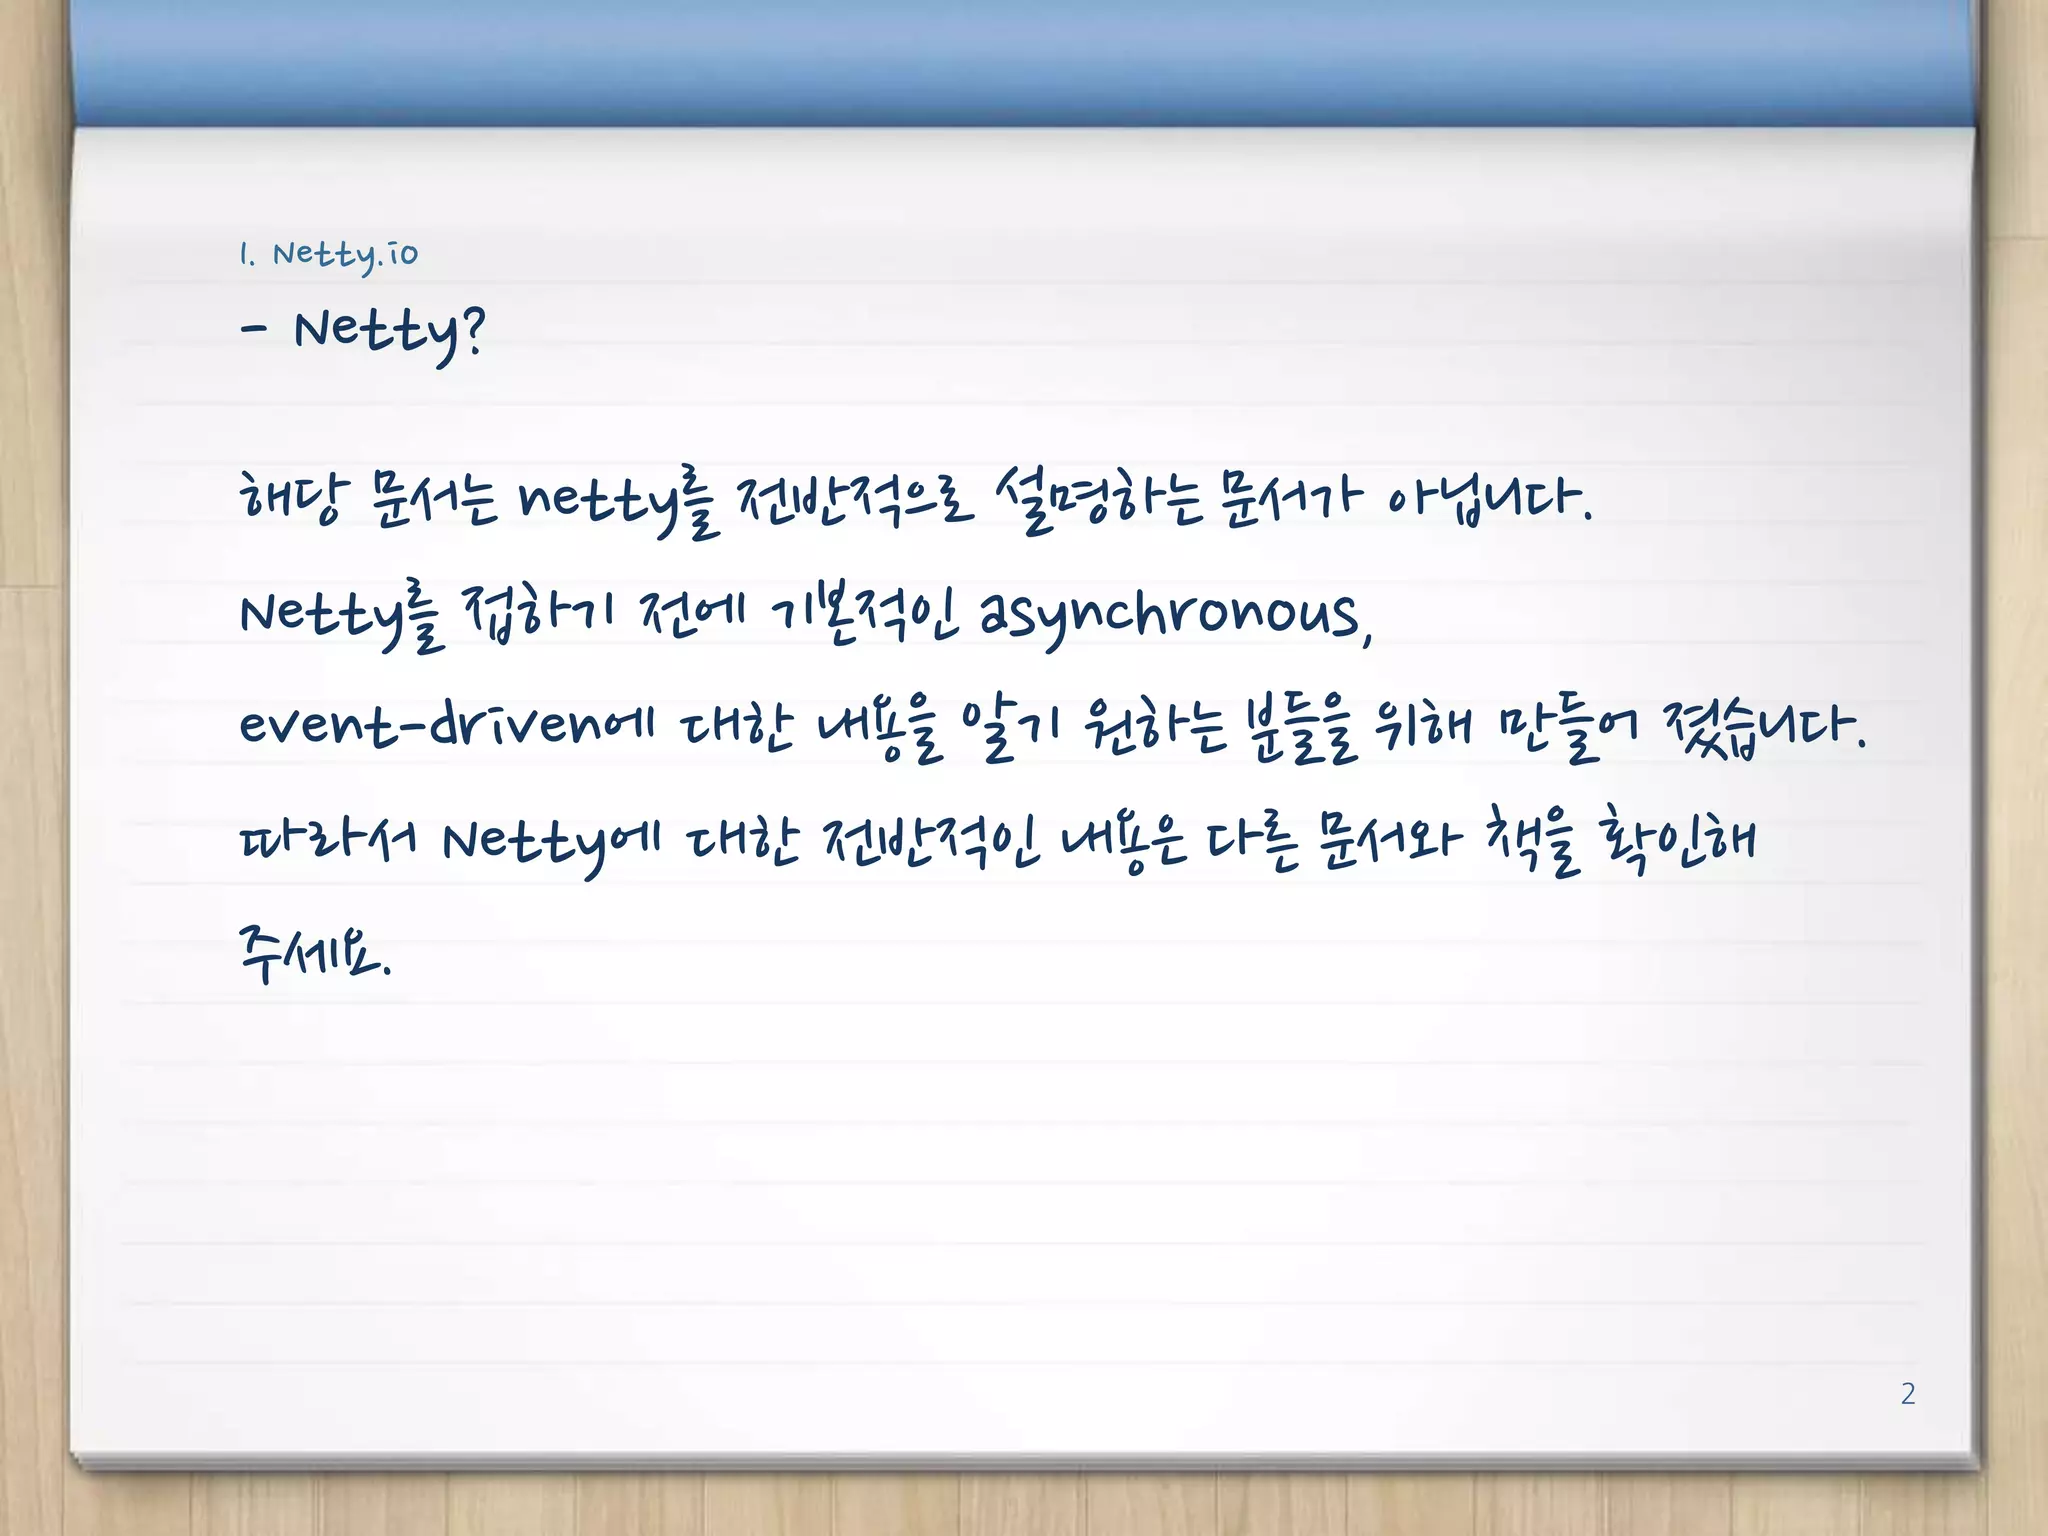 1. Netty.io
- Netty?
해당 문서는 netty를 전반적으로 설명하는 문서가 아닙니다.
Netty를 접하기 전에 기본적인 asynchronous,
event-driven에 대한 내용을 알기 원하는 분들을 위해 만들어 졌습니다.
따라서 Netty에 대한 전반적인 내용은 다른 문서와 책을 확인해
주세요.
2